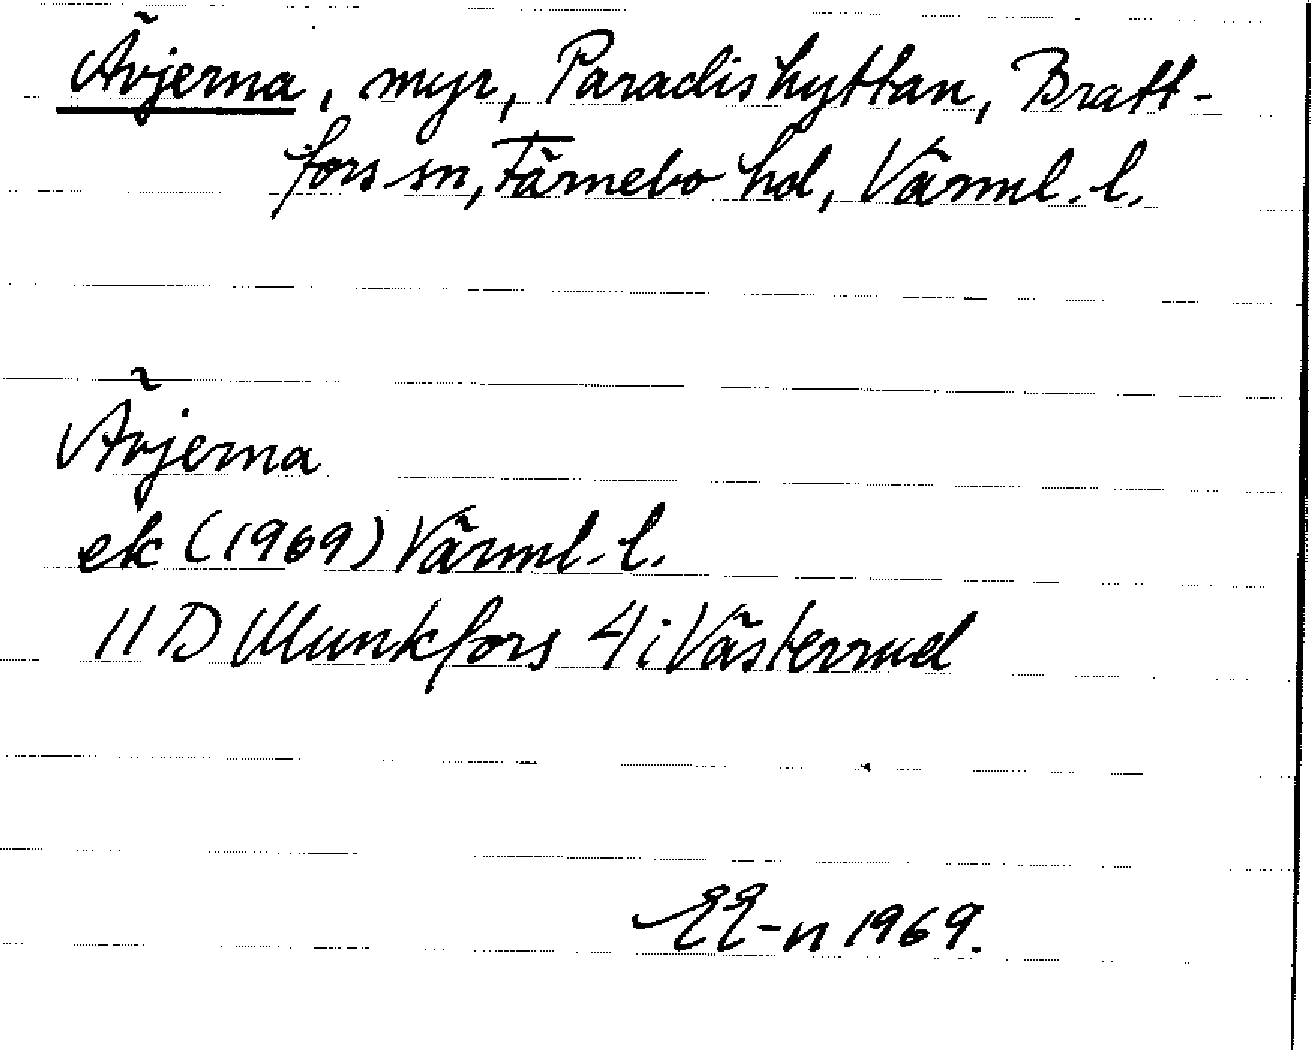 Ävjerna, myr, Paradishyttan, Bratt-
fors sn, Färnebo hd, Värml. l.
Ävjerna
ek (1969) Värml. l.
11 D Munkfors 4 i Västerrud
EE-n 1969.